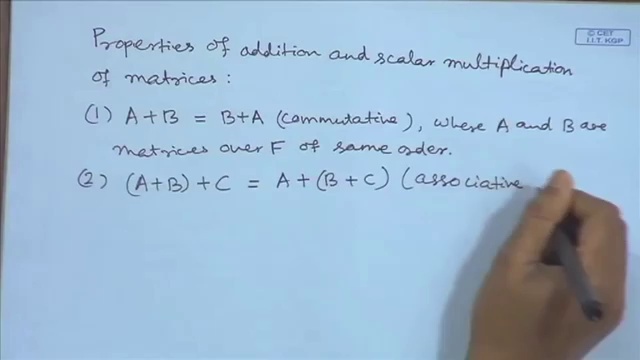 © CET
I.I.T. KGP
Properties of addition and scalar multiplication
of matrices :
(1) A+B = B+A (commutative), where A and B are
matrices over F of same order.
(2) (A+B)+C = A+(B+C) (associative